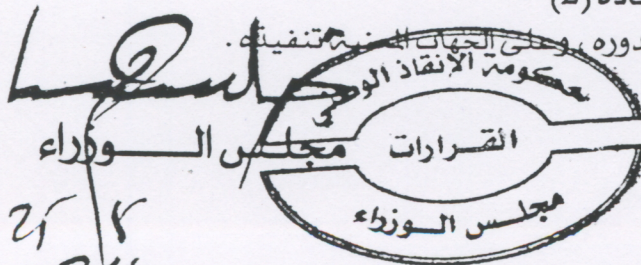 (2)
وعلى الجهات المعنية تنفيذه.
حكومة الإنقاذ الوطني
القرارات
مجلس الوزراء
مجلس الـــوزراء